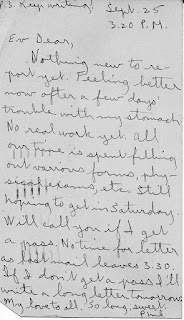 P.S. Keep writing! Sept. 25
3.20 P.M.
Ev Dear,
Nothing new to re-
port yet. Feeling better
now after a few days'
trouble with my stomach.
No real work yet. All
our time is spent filling
out various forms, phy-
sical exams, etc. Still
hoping to get in Saturday.
Will call you if I get
a pass. No time for letter
as last mail leaves 3.30.
If I don't get a pass I'll
write a long letter tomorrow.
My love to all. So long, sweet.
Phil